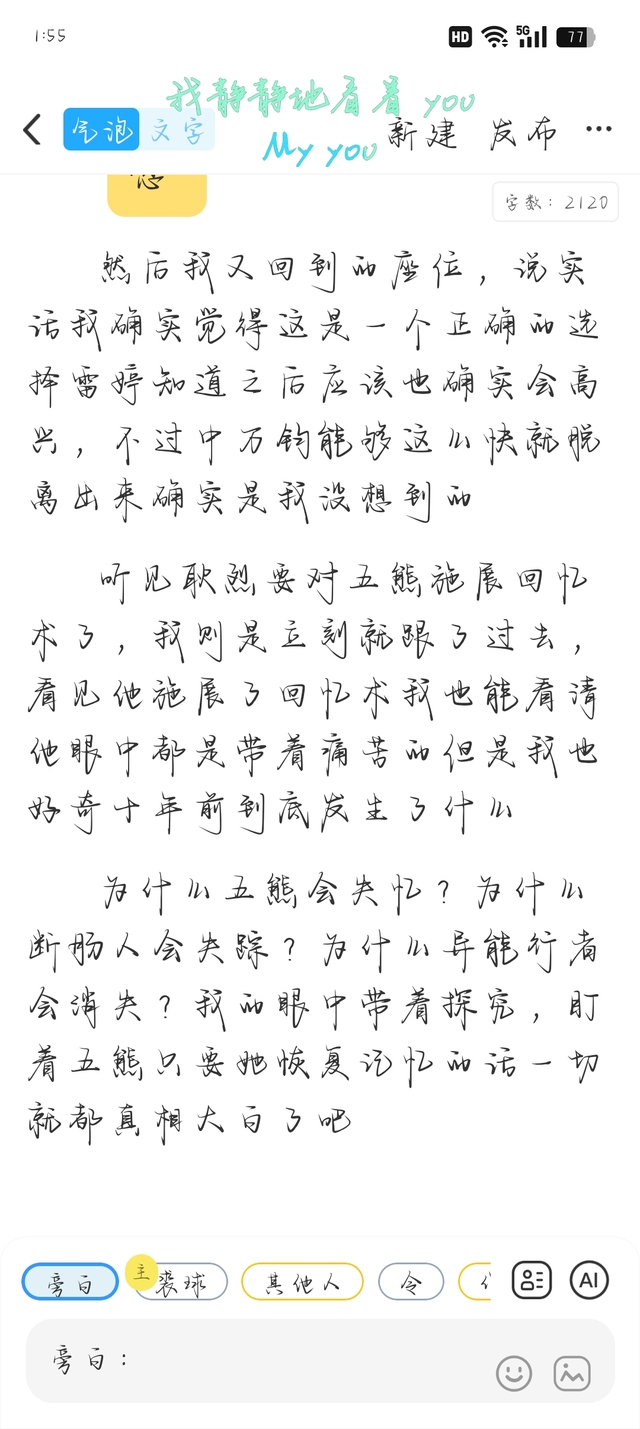 1:55
HD 5G 77
我静静地看着 you
气泡 文字
My you
新建 发布
字数：2120
然后我又回到的座位，说实
话我确实觉得这是一个正确的选
择雷婷知道之后应该也确实会高
兴，不过中万钧能够这么快就脱
离出来确实是我没想到的
听见耿烈要对五熊施展回忆
术了，我则是立刻就跟了过去，
看见他施展了回忆术我也能看清
他眼中都是带着痛苦的但是我也
好奇十年前到底发生了什么
为什么五熊会失忆？为什么
断肠人会失踪？为什么异能行者
会消失？我的眼中带着探究，盯
着五熊只要她恢复记忆的话一切
就都真相大白了吧
旁白 主 裘球 其他人 令
AI
旁白：